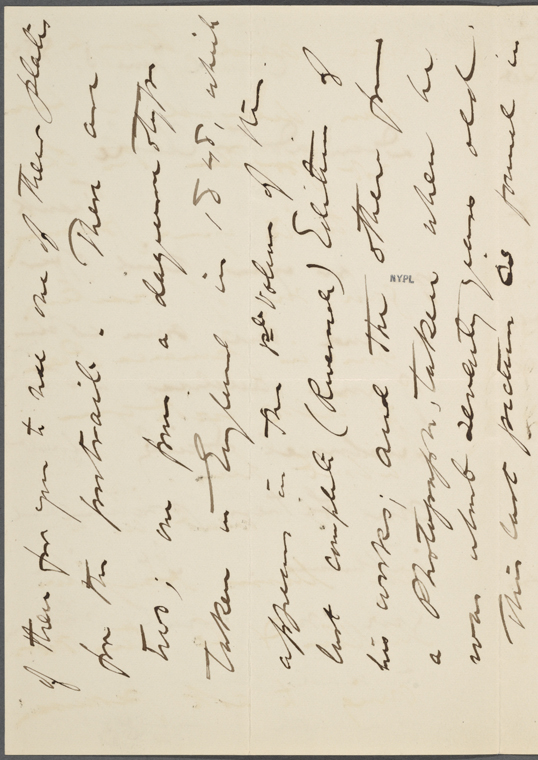 of them for you to use one of their plates
for the portrait. There are
two; one from a daguerreotype
taken in England in 1848, which
appears in the 1st Volume of the
last complete (Riverside) Edition of
his works; and the other from
a Photograph, taken when he
was about seventy years old.
This last picture is found in
NYPL